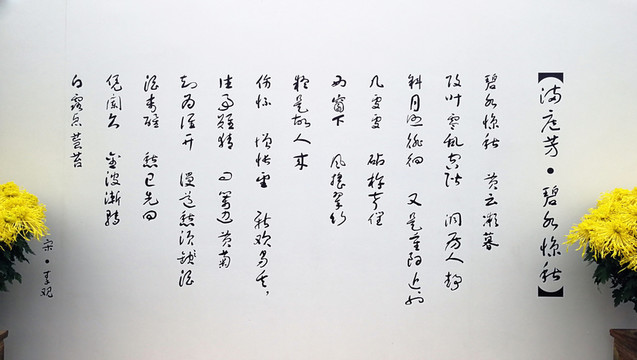 【满庭芳·碧水惊秋】
碧水惊秋 黄云凝暮
败叶零乱空阶 洞房人静
斜月照徘徊 又是重阳近也
几处处 砧杵声催
西窗下 风摇翠竹
疑是故人来
伤怀 增怅望 新欢易失，
往事难猜 问篱边黄菊
知为谁开 谩道愁须殢酒
酒未醒 愁已先回
凭阑久 金波渐转
白露点苍苔
宋·秦观